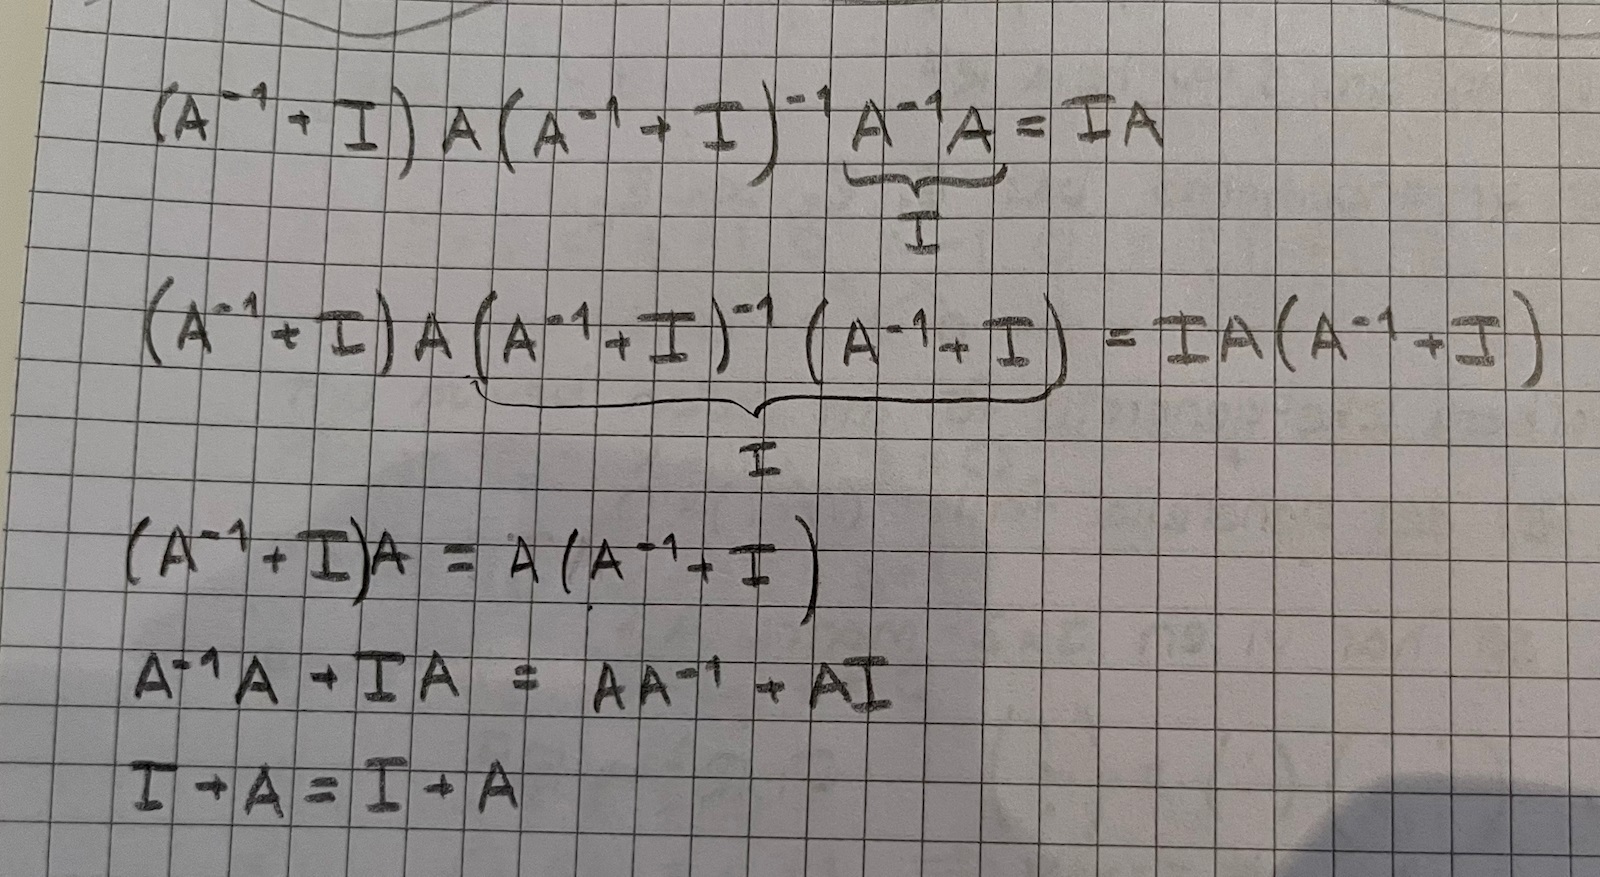 (A⁻¹ + I) A (A⁻¹ + I)⁻¹ A⁻¹A = IA
I
(A⁻¹ + I) A (A⁻¹ + I)⁻¹ (A⁻¹ + I) = IA(A⁻¹ + I)
I
(A⁻¹ + I)A = A(A⁻¹ + I)
A⁻¹A + IA = AA⁻¹ + AI
I + A = I + A